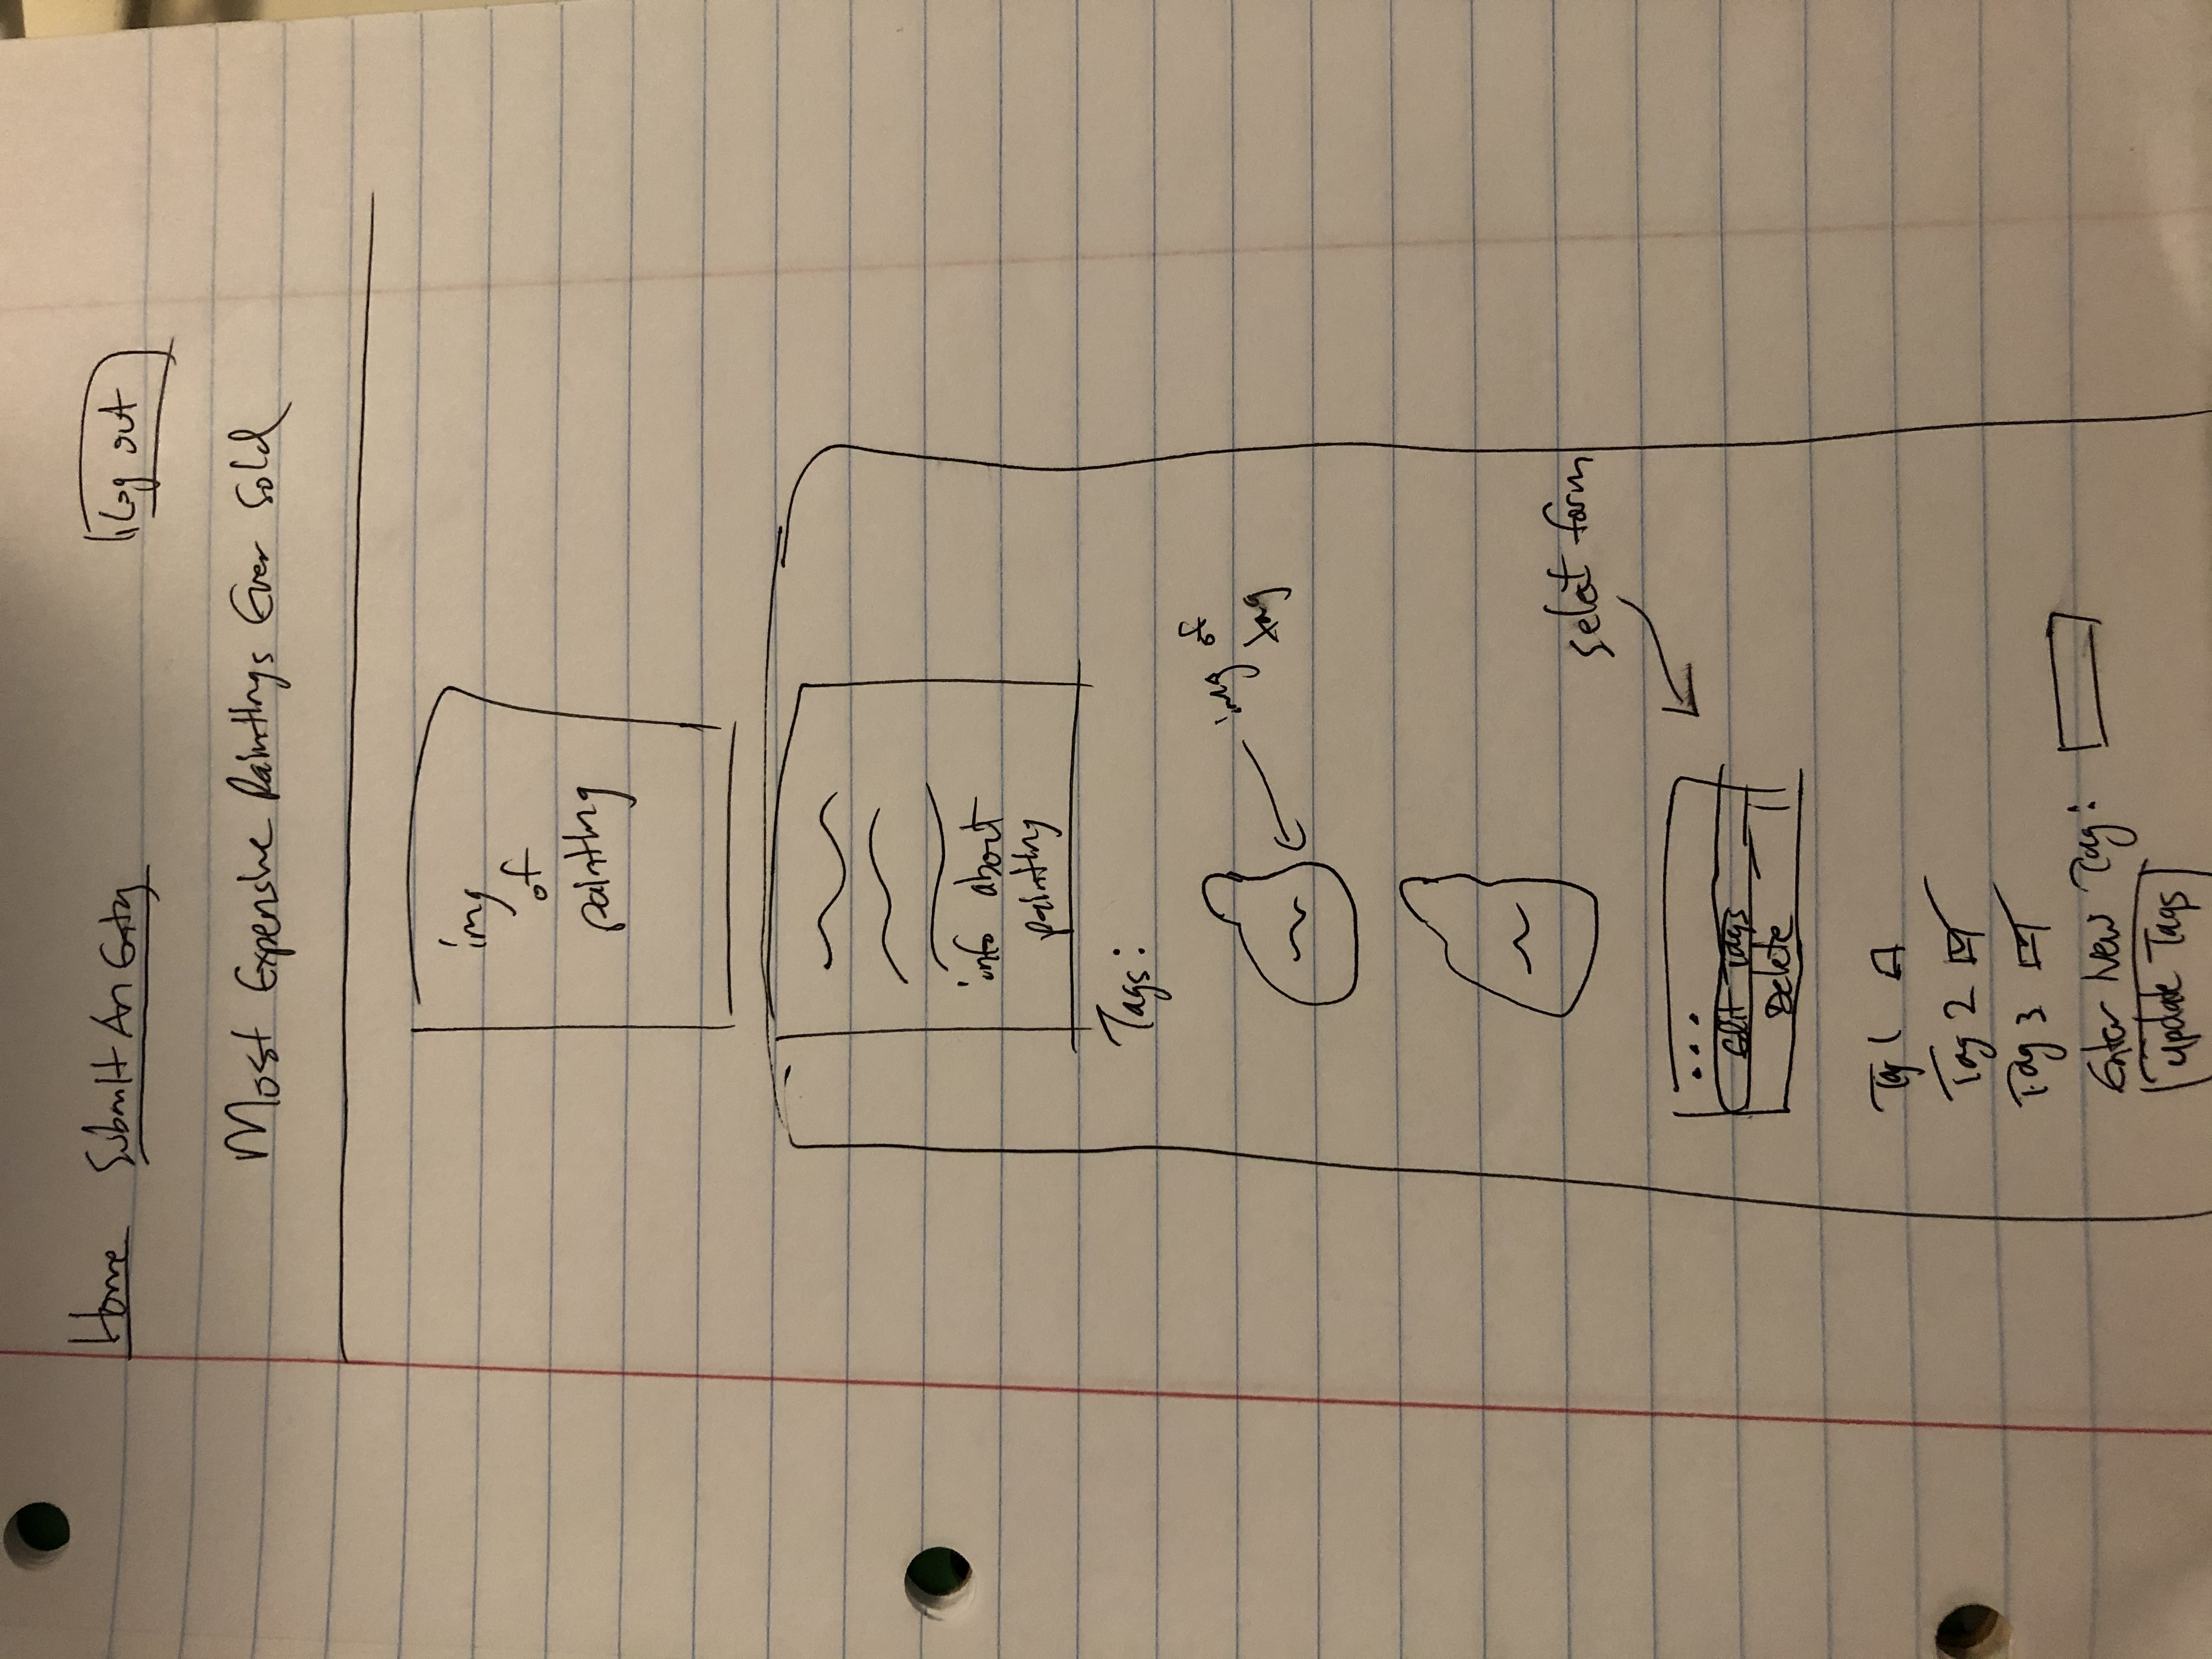 Home Submit An Entry Log out
Most Expensive Paintings Ever Sold
img
of
painting
info about
painting
Tags:
img of
tag
select form
...
Edit Tags
Delete
Tag 1
Tag 2
Tag 3
Enter New Tag:
Update Tags